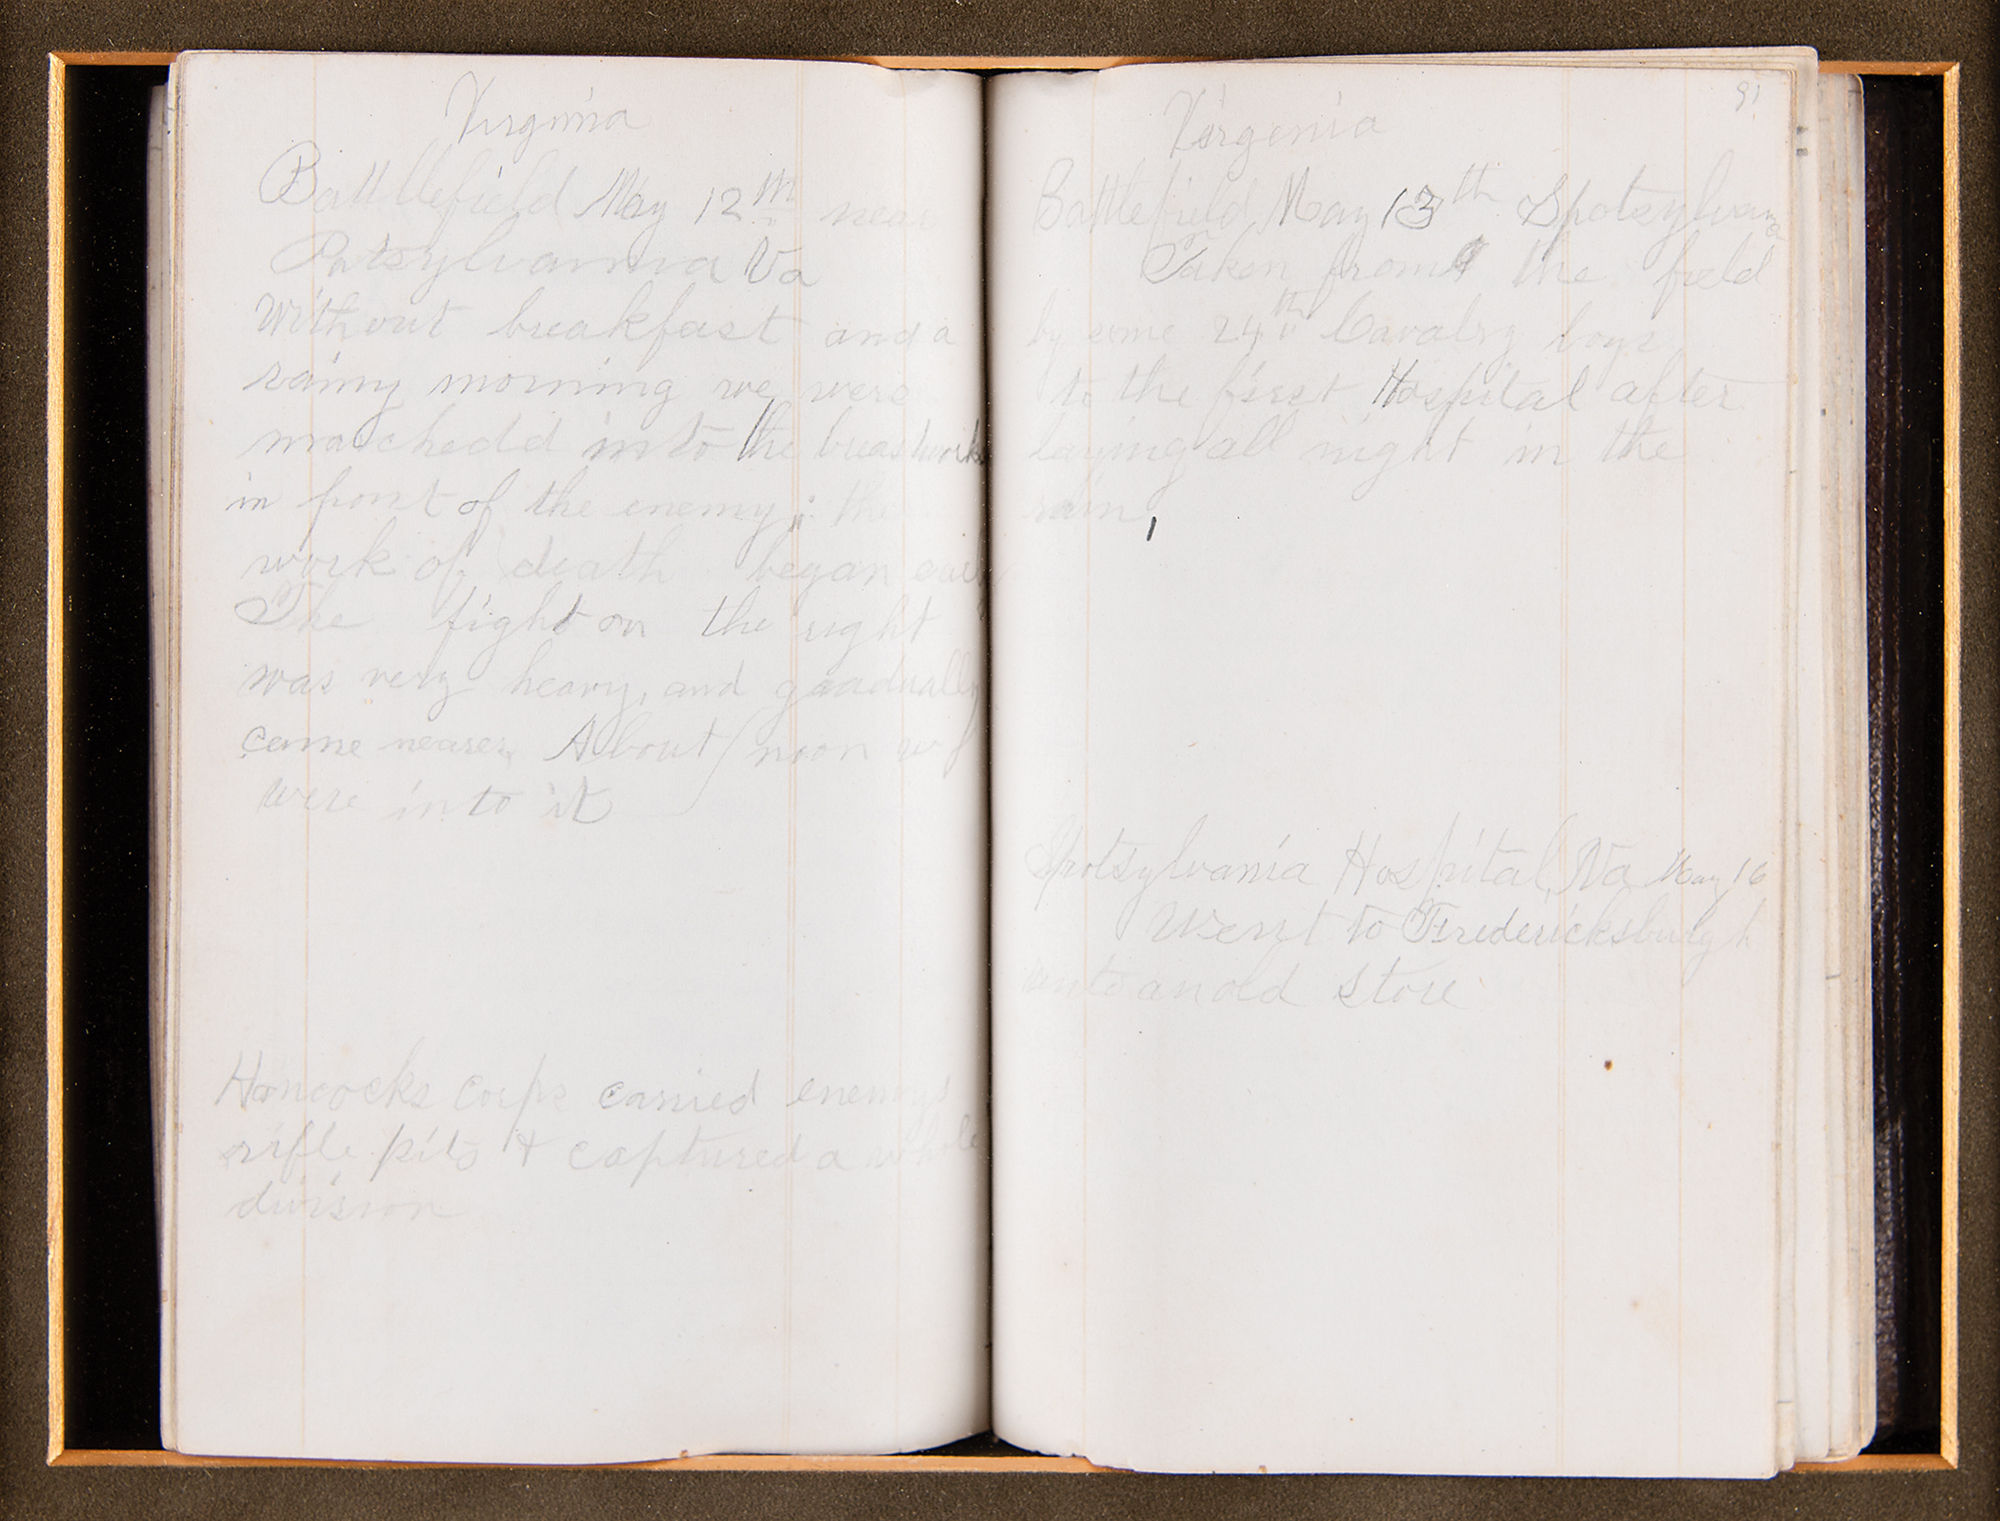 Virginia
Battllefield May 12th near
Potsylvannia Va
Without breakfast and a
rainy morning we were
marchedd into the breastworks
in front of the enemy; the
work of death began early
The fight on the right
was very heavy, and graadually
came nearer. About noon we
were into it
Hancocks corps carried enemys
rifle pits & captured a whole
division
91
Virgenia
Battlefield May 13th Spotsylvana
Taken from the field
by some 24th Cavalry boys
to the first Hospital after
laying all night in the
rain,
Spotsylvania Hospital, Va May 16
Went to Fredericksburgh
into an old store